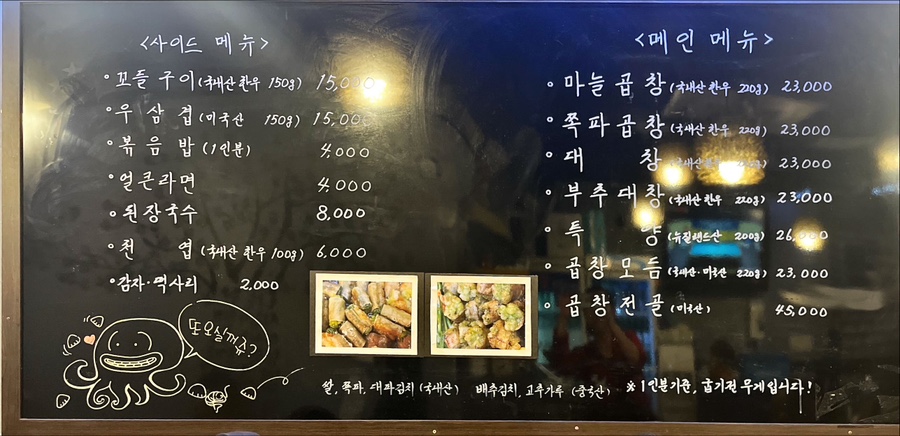 <사이드 메뉴>
• 꼬들 구이 (국내산 한우 150g) 15,000
• 우 삼 겹 (미국산 150g) 15,000
• 볶 음 밥 (1인분) 4,000
• 얼큰라면 4,000
• 된장국수 8,000
• 천 엽 (국내산 한우 100g) 6,000
• 감자·떡사리 2,000
또오실거쥬?
<메인 메뉴>
• 마늘곱창 (국내산 한우 220g) 23,000
• 쪽파곱창 (국내산 한우 220g) 23,000
• 대 창 (국내산 23,000
• 부추대창 (국내산 한우 220g) 23,000
• 특 양 (뉴질랜드산 200g) 26,000
• 곱창모듬 (국내산·미국산 220g) 23,000
• 곱창전골 (미국산) 45,000
쌀, 쪽파, 대파김치 (국내산) 배추김치, 고추가루 (중국산) ※ 1인분기준, 굽기전 무게입니다!